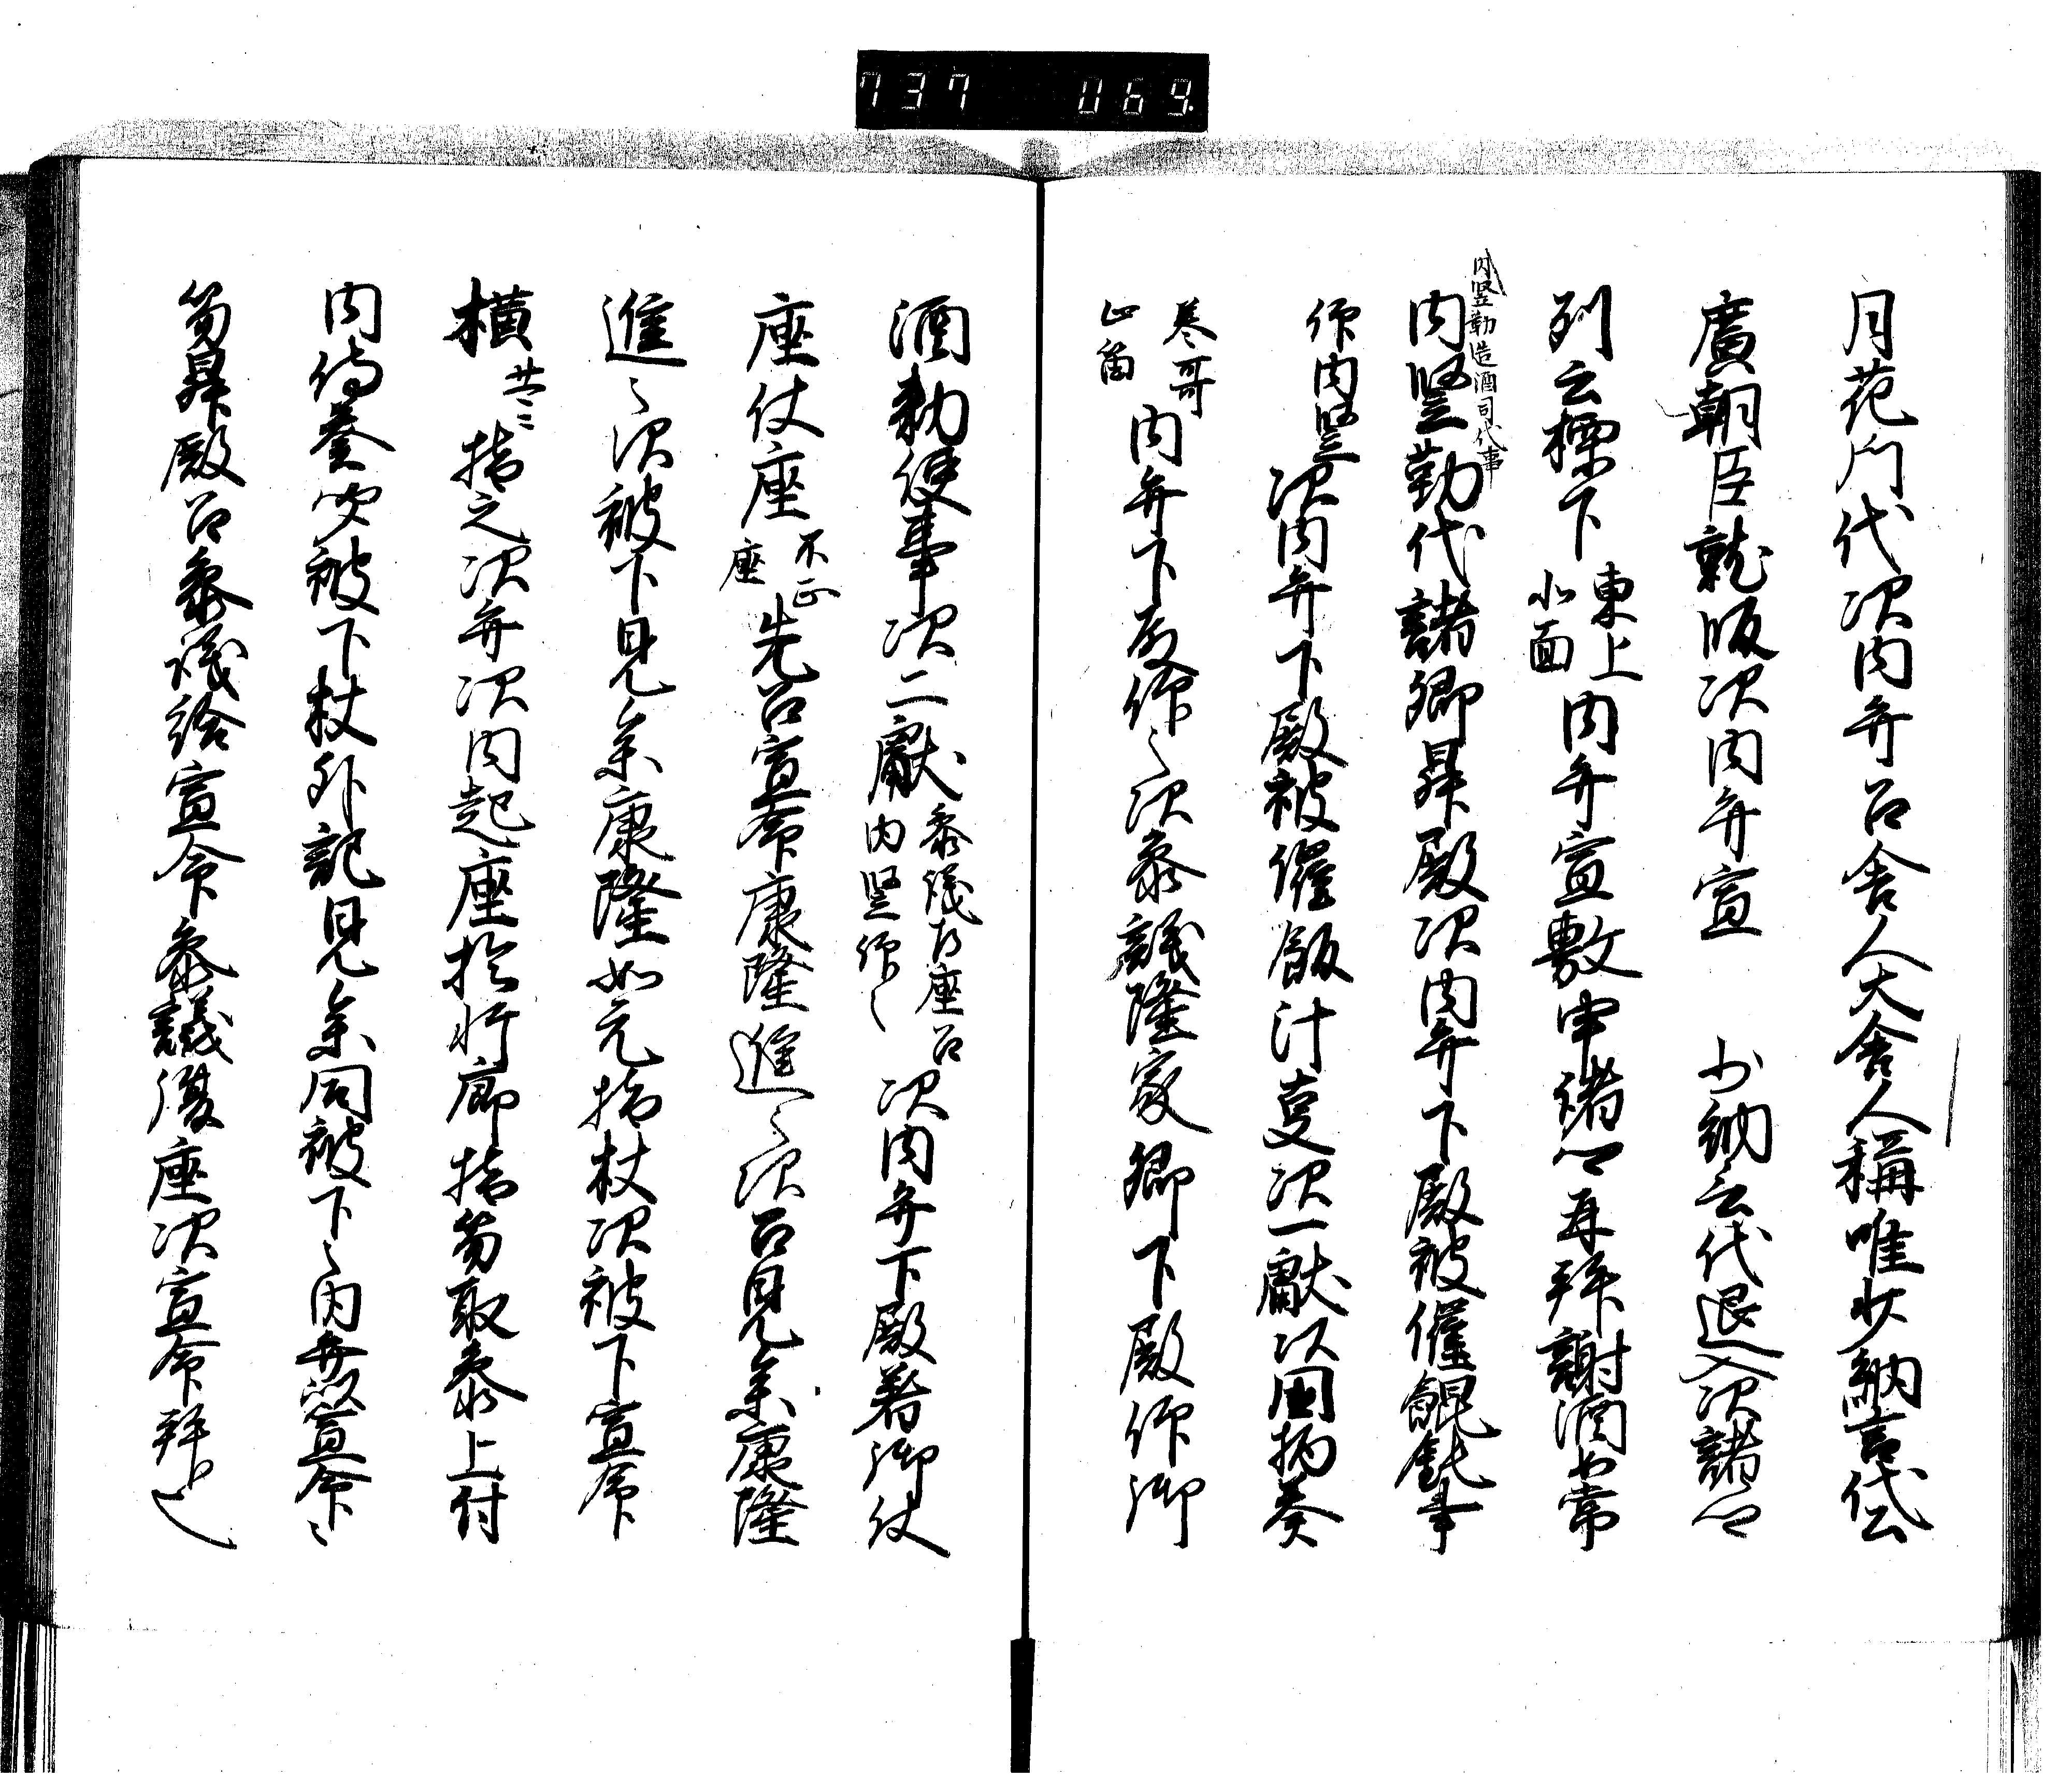 737 069
月花門代次内弁召舎人大舎人稱唯少納言代公
廣朝臣就版次内弁宣 少納言代退入次諸卿
列立標下 東上
北面 内弁宣敷尹諸卿再拝謝酒如常
内竪勤造酒司代事
内竪勤代諸卿昇殿次内弁下殿被催餛飩事
仰内竪 次内弁下殿被催飯汁事次一献次国栖奏
止笛 内弁下殿仰之次参議隆家卿下殿仰御
酒勅使事次二献 参議乍座召
内竪仰之 次内弁下殿著御仗
座仗座 不正
座 先召宣命康隆進之次召見参康隆
進之次被下見参康隆如元挿杖次被下宣命
横 挿之次弁次内起座於行廊挿笏取参上付
内侍奏聞被下杖外記見参同被下之内弁以宣命
笏昇殿召参議給宣命参議復座次宣命拝